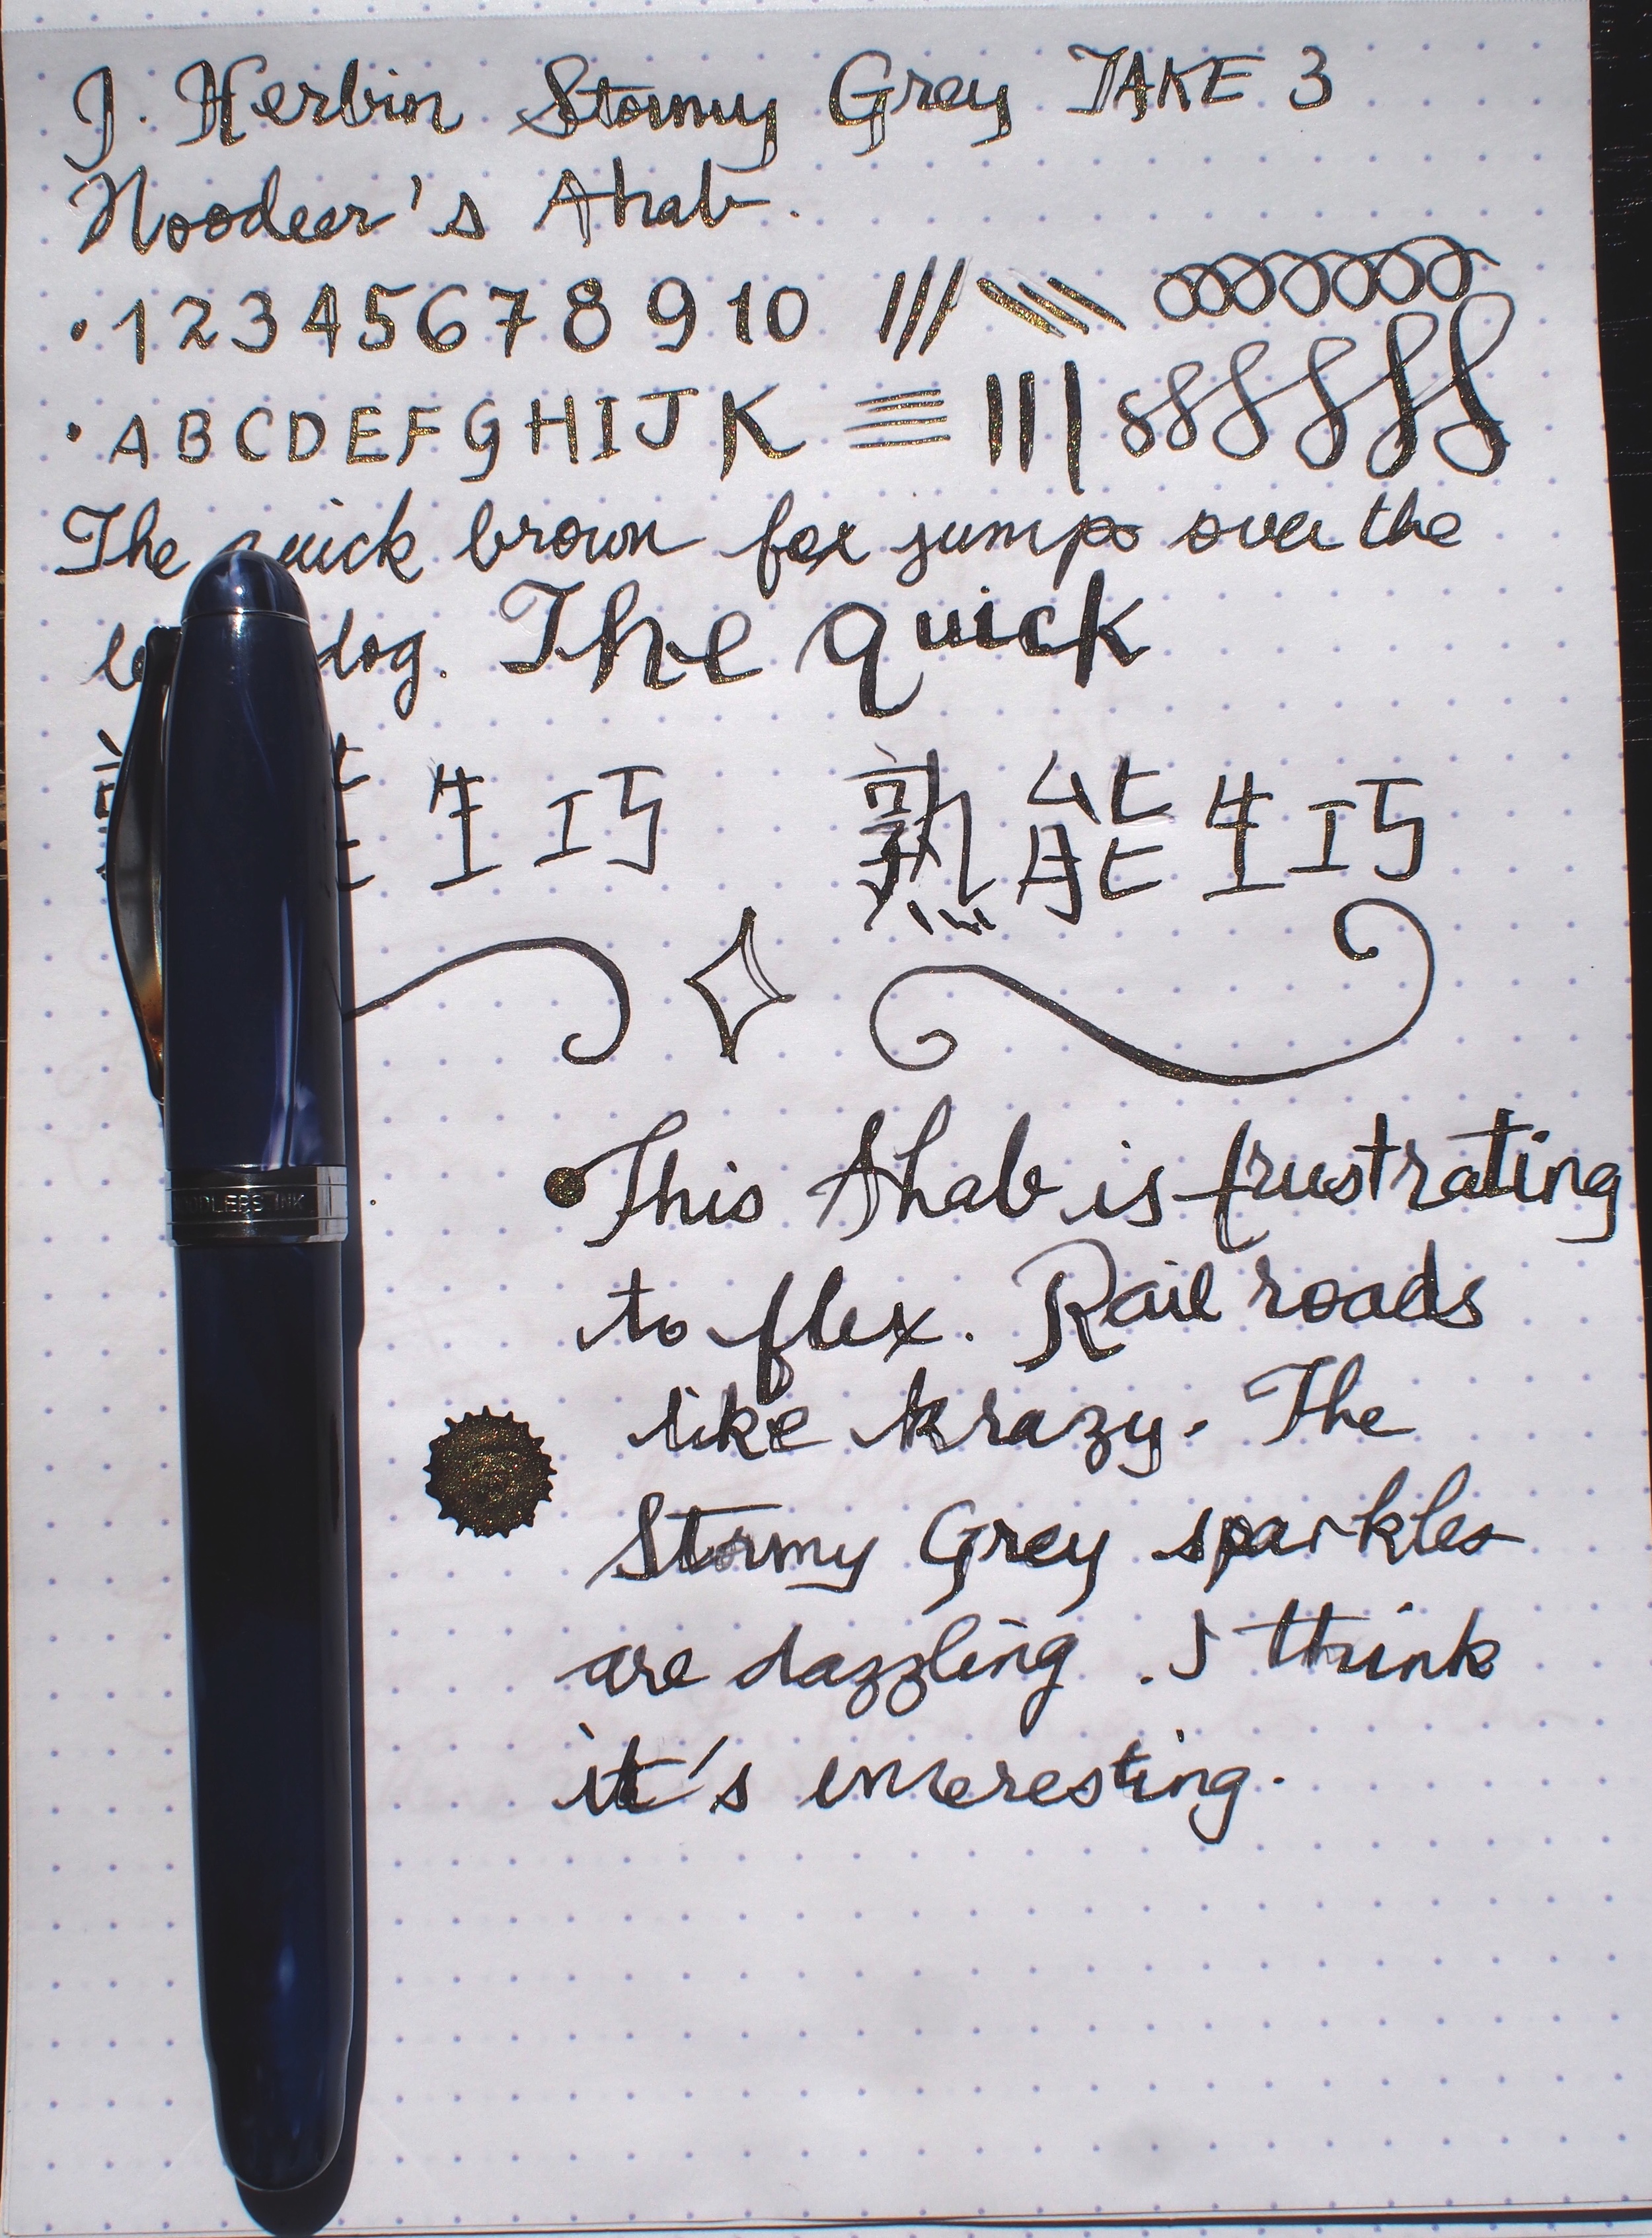 J. Herbin Stormy Grey TAKE 3
Noodler's Ahab.
• 1 2 3 4 5 6 7 8 9 10
• A B C D E F G H I J K
The quick brown fox jumps over the
dog. The quick
生巧 熟能生巧
• This Ahab is frustrating
to flex. Rail roads
like krazy. The
Stormy Grey sparkles
are dazzling. I think
it's interesting.
NOODLERS INK